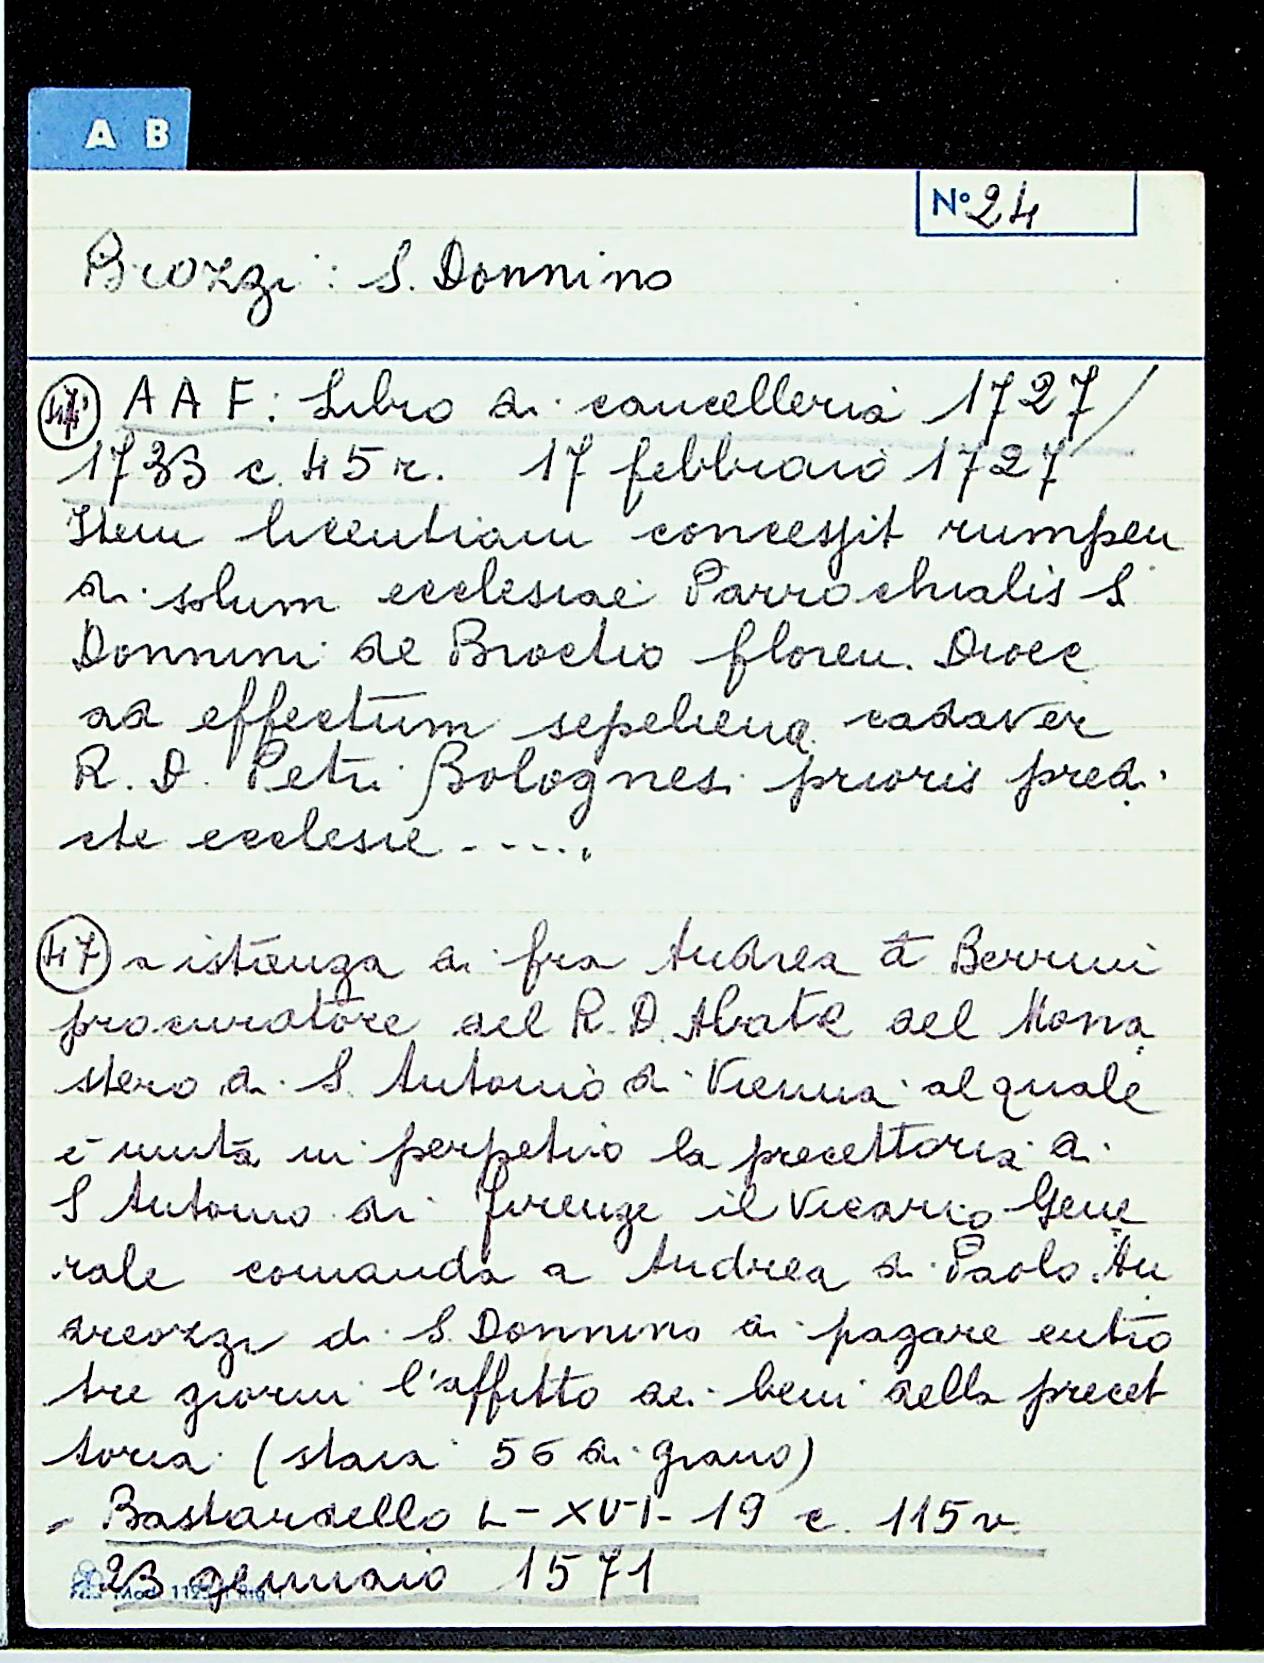 A B
Nº 24
Brozzi: S. Donnino
AAF: Libro di cancelleria 1727/
1733 c. 45r. 17 febbraio 1727
Item licentiam concessit rumpen
di solum ecclesiae Parrochialis S
Donnini de Broctio floren. Dioec
ad effectum sepeliend cadaver
R. D. Petri Bolognesi prioris pred.
cte ecclesie .....
47 a istanza di fra Andrea
procuratore del R. D. Abate del Mona
stero di S. Antonio di Vienna al quale
è unita in perpetuo la precettoria di
S Antonio di Firenze il Vicario Gene
rale comanda a Andrea di Paolo An
dreozzi di S. Donnino di pagare entro
tre giorni l'affitto dei beni della precet
toria (staia 56 di grano)
- Bastardello L-XVI-19 c. 115v.
23 gennaio 1571